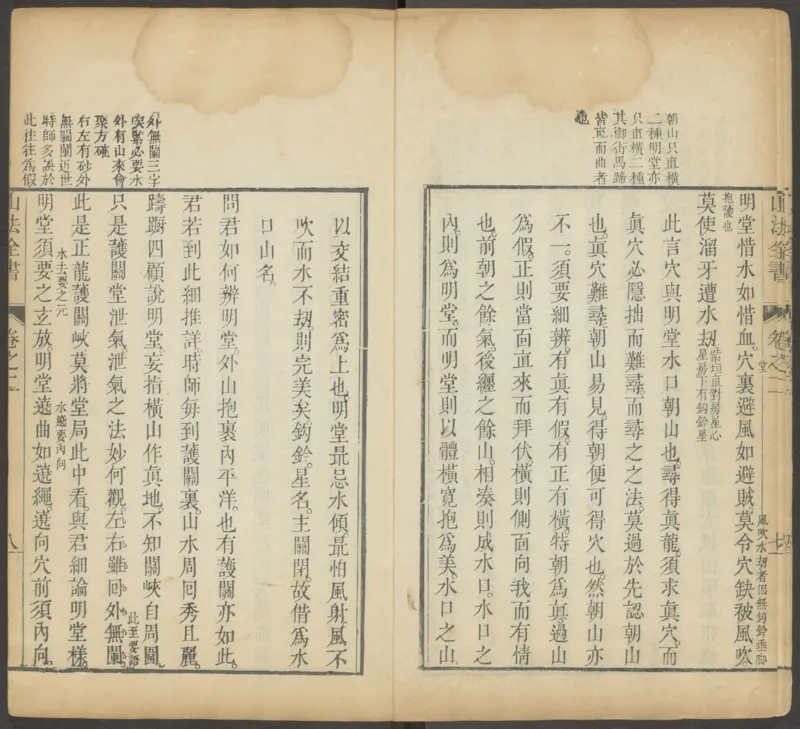 朝山只直橫
二種明堂亦
只直橫二種
其御街馬蹄
皆直而曲者
也
山法全書
卷之二
七
明堂惜水如惜血。穴裏避風如避賊。莫令穴缺被風吹
抱陵也
堂
風吹水刼者因無鉤鈐垂脚
莫使溜牙遭水刼
紫垣直對房星心
星房下有鉤鈐星
此言穴與明堂水口朝山也。尋得眞龍。須求眞穴。而
眞穴必隱拙而難尋。而尋之之法。莫過於先認朝山
也。眞穴難尋。朝山易見。得朝便可得穴也。然朝山亦
不一。須要細辨。有眞有假。有正有橫。特朝爲眞。過山
爲假。正則當面直來而拜伏。橫則側面向我而有情
也。前朝之餘氣。後纒之餘山。相湊則成水口。水口之
內。則爲明堂。而明堂則以體橫寬抱爲美。水口之山
以交結重密爲上也。明堂最忌水傾。最怕風射。風不
吹而水不刼。則完美矣。鉤鈐。星名。主關閉。故借爲水
口山名。
問君如何辨明堂。外山抱裏內平洋。也有護關亦如此。
君若到此細推詳。時師每到護關裏。山水周回秀且麗。
躊蹰四顧說明堂。妄指橫山作眞地。不知關峽自周圓。
只是護關堂泄氣。泄氣之法妙何觀。左右雖回外無闌。
此至要語
此是正龍護關峽。莫將堂局此中看。與君細論明堂樣。
水去要之元
水遶要內向
明堂須要之玄放。明堂遶曲如遶繩。遶向穴前須內向。
外無闌三字
喫緊必要水
外有山來會
聚方確
右左有砂外
無關闌近世
時師多誤於
此往往爲假
山法全書
卷之二
八